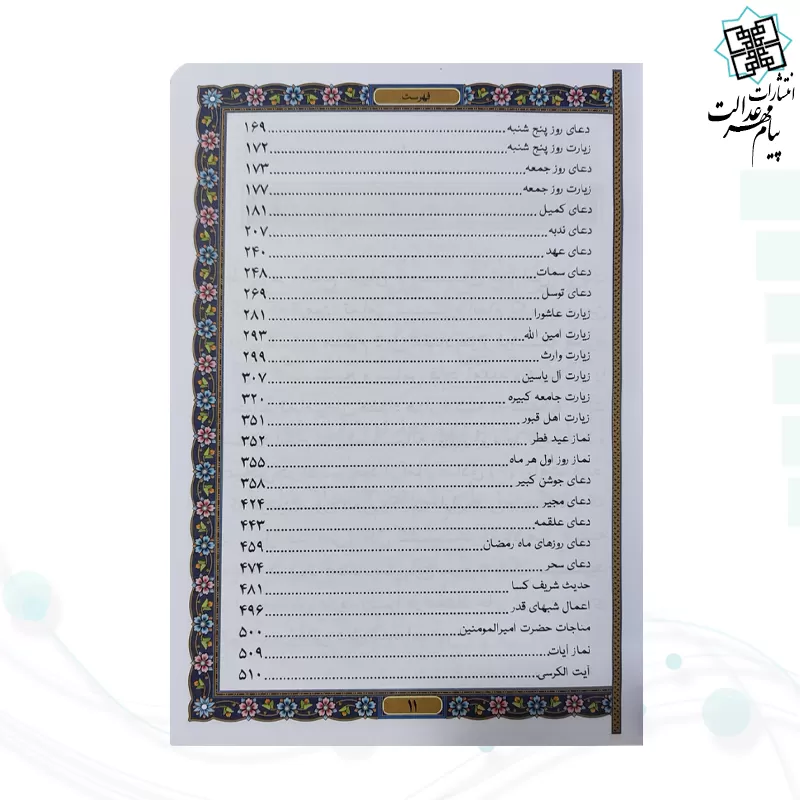 انتشارات
پیام مهر عدالت
فهرست
دعای روز پنج شنبه ۱۶۹
زیارت روز پنج شنبه ۱۷۲
دعای روز جمعه ۱۷۳
زیارت روز جمعه ۱۷۷
دعای کمیل ۱۸۱
دعای ندبه ۲۰۷
دعای عهد ۲۴۰
دعای سمات ۲۴۸
دعای توسل ۲۶۹
زیارت عاشورا ۲۸۱
زیارت امین الله ۲۹۳
زیارت وارث ۲۹۹
زیارت آل یاسین ۳۰۷
زیارت جامعه کبیره ۳۲۰
زیارت اهل قبور ۳۵۱
نماز عید فطر ۳۵۲
نماز روز اول هر ماه ۳۵۵
دعای جوشن کبیر ۳۵۸
دعای مجیر ۴۲۴
دعای علقمه ۴۴۳
دعای روزهای ماه رمضان ۴۵۹
دعای سحر ۴۷۴
حدیث شریف کسا ۴۸۱
اعمال شبهای قدر ۴۹۶
مناجات حضرت امیرالمومنین ۵۰۰
نماز آیات ۵۰۹
آیت الکرسی ۵۱۰
۱۱